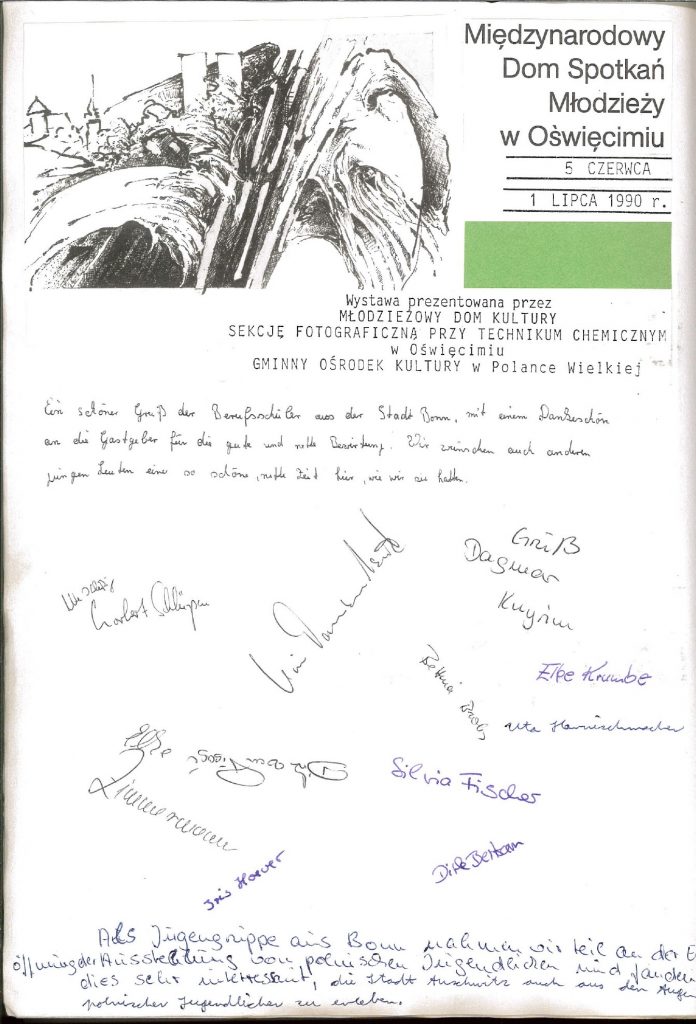 Międzynarodowy
Dom Spotkań
Młodzieży
w Oświęcimiu
5 CZERWCA
1 LIPCA 1990 r.
Wystawa prezentowana przez
MŁODZIEŻOWY DOM KULTURY
SEKCJĘ FOTOGRAFICZNĄ PRZY TECHNIKUM CHEMICZNYM
w Oświęcimiu
GMINNY OŚRODEK KULTURY w Polance Wielkiej
Ein schöner Gruß der Berufsschüler aus der Stadt Bonn, mit einem Dankeschön
an die Gastgeber für die gute und nette Bewirtung! Wir wünschen auch anderen
jungen Leuten eine so schöne, nette Zeit hier, wie wir sie hatten.
Gruß
Dagmar
Norbert
Bettina
Elke Krumbe
Uta Harnischmacher
Elke
Zimmermann
Silvia Fischer
Iris Hower
Dirk Bertram
Als Jugengruppe aus Bonn nahmen wir teil an der E
öffnung der Ausstellung von polnischen Jugendlichen und fanden
dies sehr interessant, die Stadt Auschwitz auch aus den Augen
polnischer Jugendlicher zu erleben.